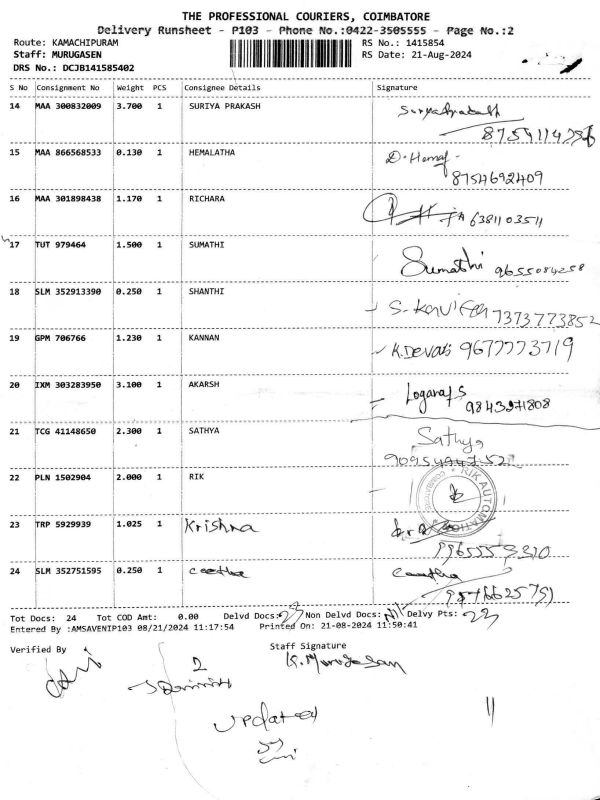 THE PROFESSIONAL COURIERS, COIMBATORE
Delivery Runsheet - P103 - Phone No.:0422-3505555 - Page No.:2
Route: KAMACHIPURAM RS No.: 1415854
Staff: MURUGASEN RS Date: 21-Aug-2024
DRS No.: DCJB141585402
S No Consignment No Weight PCS Consignee Details Signature
14 MAA 300832009 3.700 1 SURIYA PRAKASH Suryaprakash
15 MAA 866568533 0.130 1 HEMALATHA D. Hema
8754692409
16 MAA 301898438 1.170 1 RICHARA 6381103511
17 TUT 979464 1.500 1 SUMATHI Sumathi 9655084258
18 SLM 352913390 0.250 1 SHANTHI S. Kavitha 7373773852
19 GPM 706766 1.230 1 KANNAN K.Devaki 9677773719
20 IXM 303283950 3.100 1 AKARSH Logaraj S
9843271808
21 TCG 41148650 2.300 1 SATHYA Sathya
22 PLN 1502904 2.000 1 RIK RIK AUTOMATION
23 TRP 5929939 1.025 1 Krishna
24 SLM 352751595 0.250 1 Geetha Geetha
Tot Docs: 24 Tot COD Amt: 0.00 Delvd Docs: 23 Non Delvd Docs: Nil Delvy Pts: 23
Entered By :AMSAVENIP103 08/21/2024 11:17:54 Printed On: 21-08-2024 11:50:41
Verified By Staff Signature
K. Murugesan
2
Updated